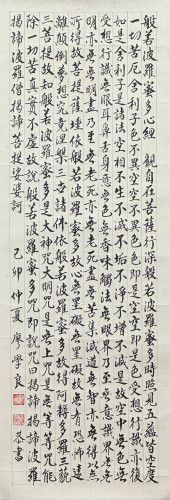 般若波羅蜜多心經 觀自在菩薩行深般若波羅蜜多時照見五蘊皆空度
一切苦厄舍利子色不異空空不異色色即是空空即是色受想行識亦復
如是舍利子是諸法空相不生不滅不垢不淨不增不減是故空中無色無受
想行識無眼耳鼻舌身意無色聲香味觸法無眼界乃至無意識界無無
明亦無無明盡乃至無老死亦無老死盡無苦集滅道無智亦無得以無
所得故菩提薩埵依般若波羅蜜多故心無罣礙無罣礙故無有恐怖遠
離顛倒夢想究竟涅槃三世諸佛依般若波羅蜜多故得阿耨多羅三藐
三菩提故知般若波羅蜜多是大神咒是大明咒是無上咒是無等等咒能
除一切苦真實不虛故說般若波羅蜜多咒即說咒曰揭諦揭諦波羅
揭諦波羅僧揭諦菩提娑婆訶
己卯仲夏 廖學良 恭書